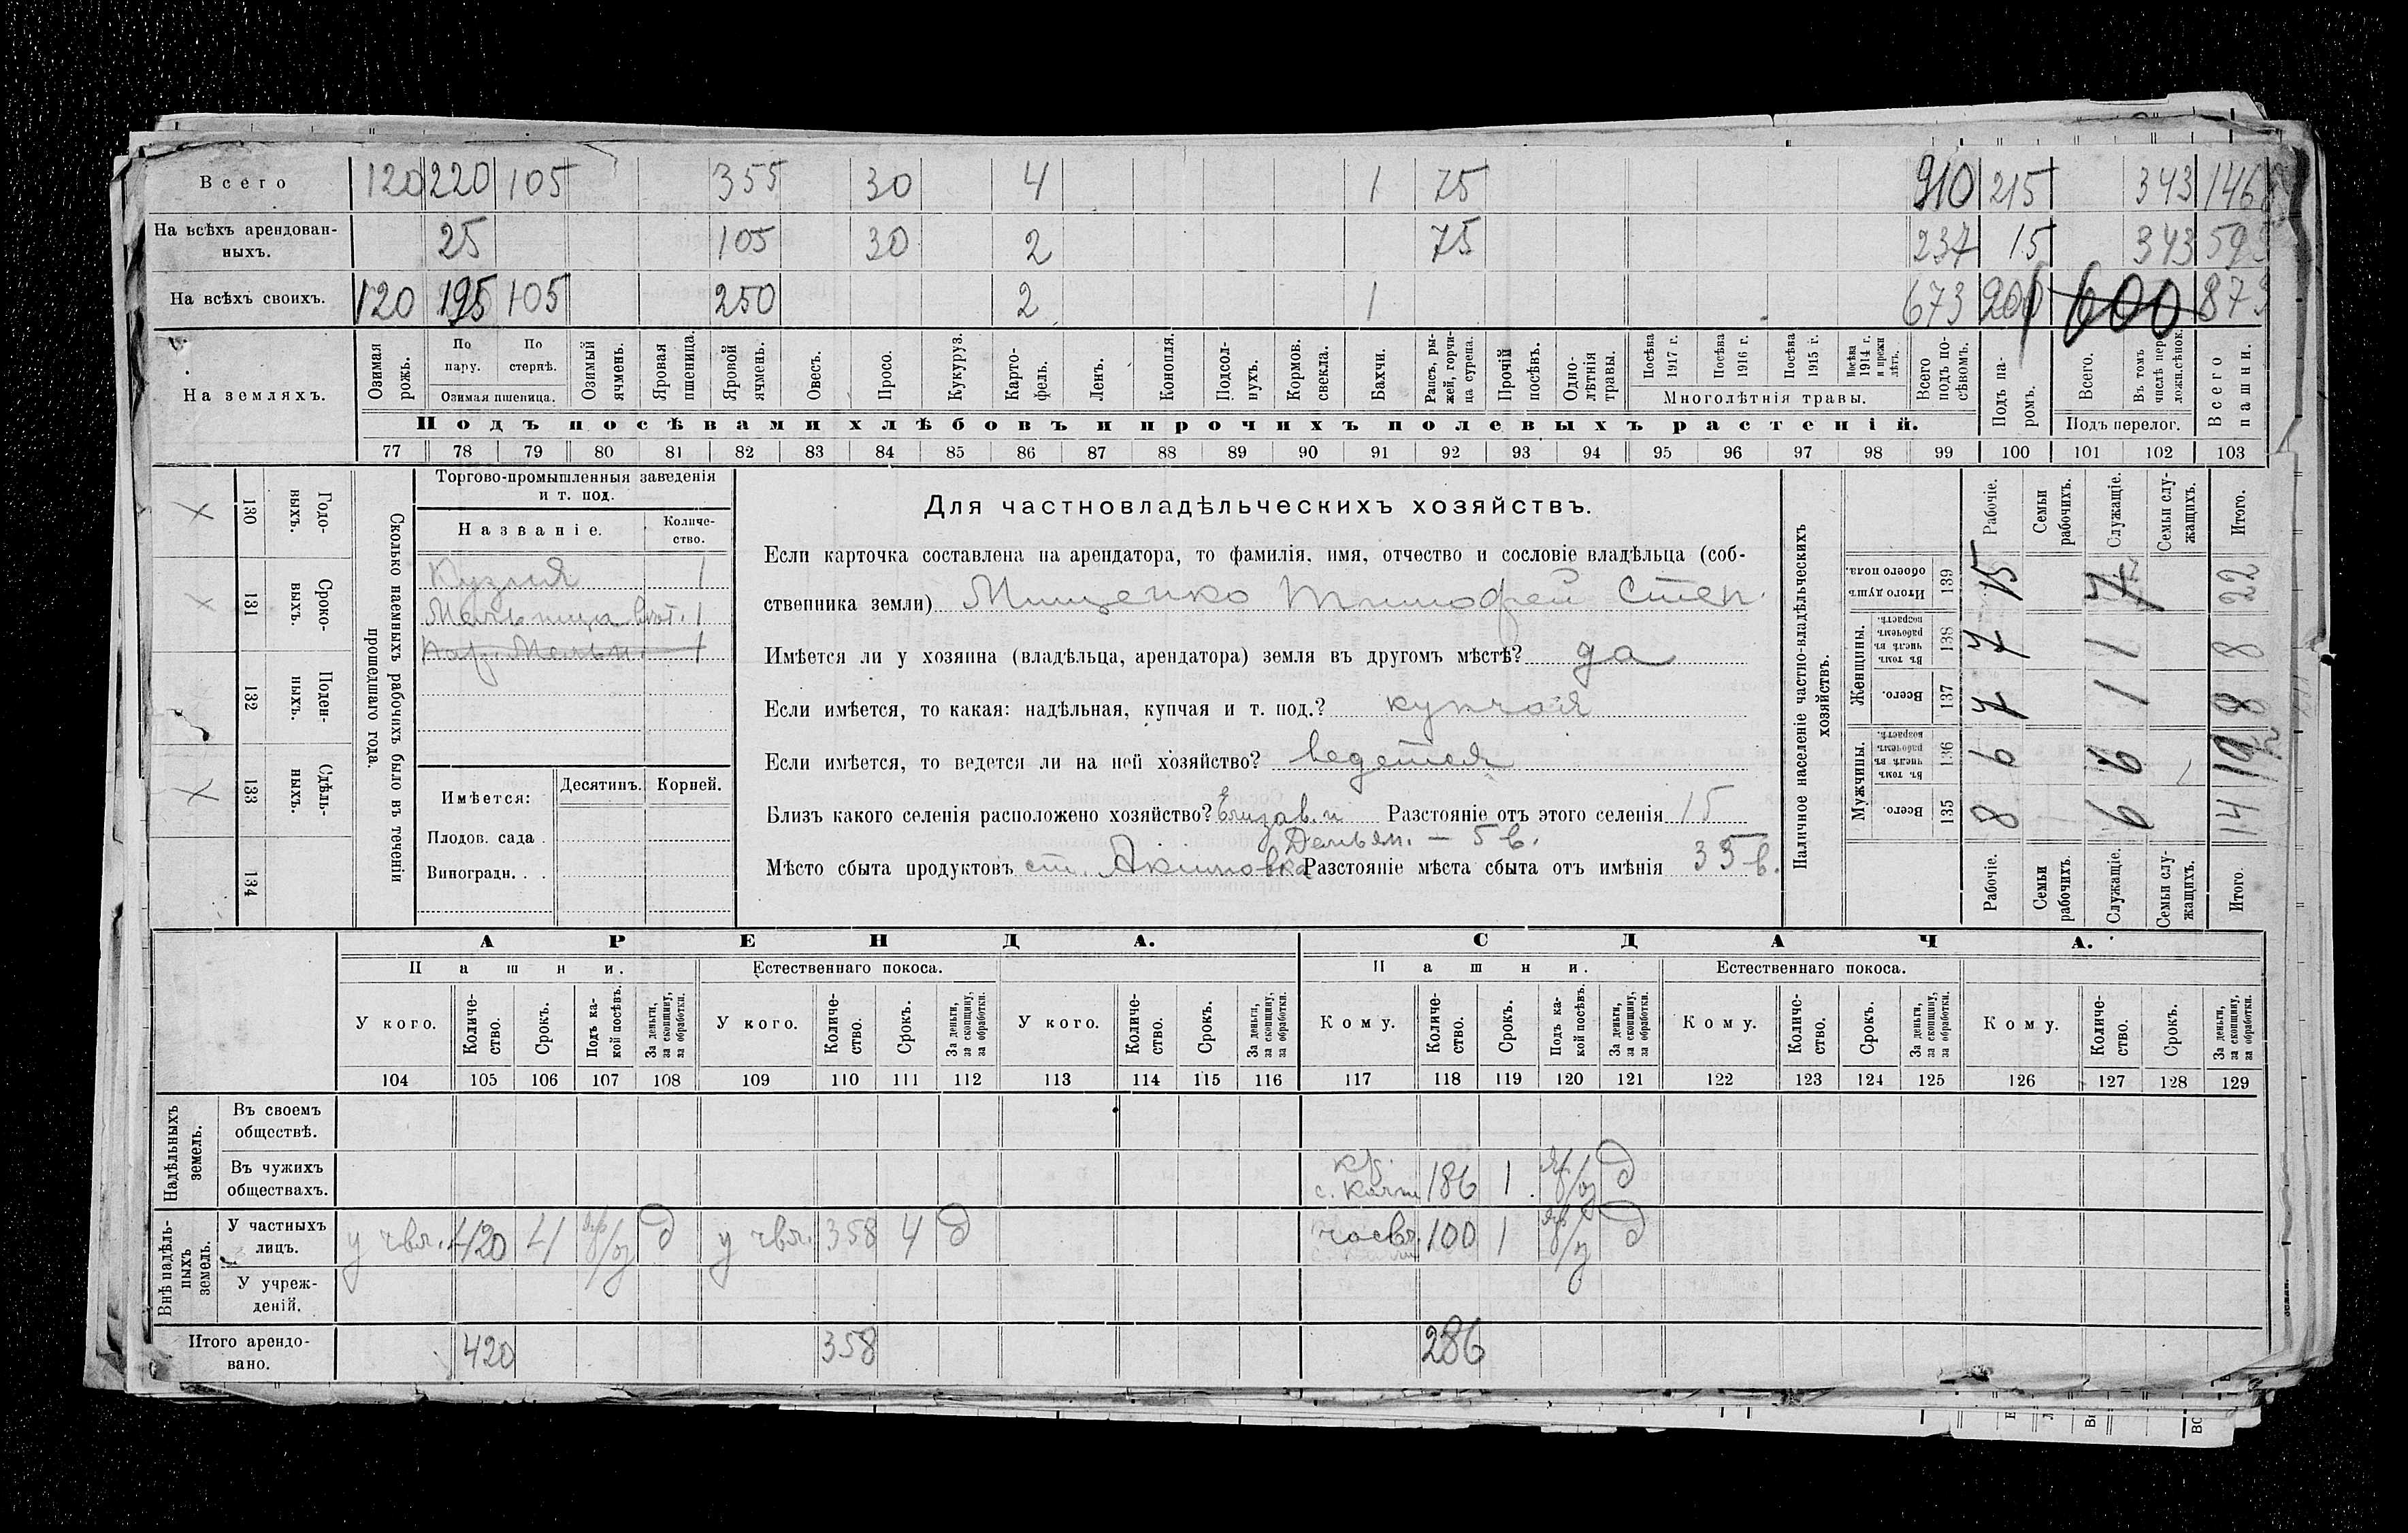 Всего 120 220 105 355 30 4 1 75 910 215 343 146
На всѣхъ арендован-
ныхъ. 25 105 30 2 75 237 15 343 595
На всѣхъ своихъ. 120 195 105 250 2 1 673 200 600 873
На земляхъ.
Озимая рожь.
По пару.
По стернѣ.
Озимая пшеница.
Озимый ячмень.
Яровая пшеница.
Яровой ячмень.
Овесъ.
Просо.
Кукуруз.
Карто-
фель.
Ленъ.
Конопля.
Подсол-
нухъ.
Кормов.
свекла.
Бахчи.
Рапсъ, ры-
жей, горчи-
ца сурепа.
Прочій посѣвъ.
Одно-
лѣтнія травы.
Посѣва 1917 г.
Посѣва 1916 г.
Посѣва 1915 г.
Посѣва 1914 г. и прежн лѣтъ.
Многолѣтнія травы.
Всего подъ по-
сѣвомъ.
Подъ па-
ромъ.
Всего.
Въ томъ числѣ пере-
ложн.сѣнок.
Подъ перелог.
Всего пашни.
Подъ посѣвами хлѣбовъ и прочихъ полевыхъ растеній.
77 78 79 80 81 82 83 84 85 86 87 88 89 90 91 92 93 94 95 96 97 98 99 100 101 102 103
Сколько наемныхъ рабочихъ было въ теченіи
прошедшаго года.
Годо-
выхъ.
130
Сроко-
выхъ.
131
Поден-
ныхъ.
132
Сдѣль-
ныхъ.
133
134
Торгово-промышленныя заведенія
и т. под.
Названіе.
Количе-
ство.
Кузня 1
Мельница 1
Имѣется: Десятинъ. Корней.
Плодов. сада .
Виноградн. . .
Для частновладѣльческихъ хозяйствъ.
Если карточка составлена на арендатора, то фамилія, имя, отчество и сословіе владѣльца (соб-
ственника земли) Мищенко Тимофей Степ.
Имѣется ли у хозяина (владѣльца, арендатора) земля въ другомъ мѣстѣ? да
Если имѣется, то какая: надѣльная, купчая и т. под.? купчая
Если имѣется, то ведется ли на ней хозяйство? ведется
Близъ какого селенія расположено хозяйство? Елизав. и Разстояніе отъ этого селенія 15
— 5 в.
Мѣсто сбыта продуктовъ ст. Акимовка Разстояніе мѣста сбыта отъ имѣнія 35 в.
Наличное населеніе частно-владѣльческихъ
хозяйствъ.
Рабочіе.
Семьи рабочихъ.
Служащіе.
Семьи слу-
жащихъ.
Итого.
Итого душъ обоего пола. 139 15 7 22
Женщины.
Въ томъ числѣ въ рабочемъ возрастѣ. 138 7 1 8
Всего. 137 7 1 8
Мужчины.
Въ томъ числѣ въ рабочемъ возрастѣ. 136 6 6
Всего. 135 8 6 14
Рабочіе.
Семьи рабочихъ.
Служащіе.
Семьи слу-
жащихъ.
Итого.
АРЕНДА. СДАЧА.
Пашни. Естественнаго покоса. Пашни. Естественнаго покоса.
У кого.
Количе-
ство.
Срокъ.
Подъ ка-
кой посѣвъ.
За деньги,
за скопщину,
за обработки.
У кого.
Количе-
ство.
Срокъ.
За деньги,
за скопщину,
за обработки.
У кого.
Количе-
ство.
Срокъ.
За деньги,
за скопщину,
за обработки.
Кому.
Количе-
ство.
Срокъ.
Подъ ка-
кой посѣвъ.
За деньги,
за скопщину,
за обработки.
Кому.
Количе-
ство.
Срокъ.
За деньги,
за скопщину,
за обработки.
Кому.
Количе-
ство.
Срокъ.
За деньги,
за скопщину,
за обработки.
104 105 106 107 108 109 110 111 112 113 114 115 116 117 118 119 120 121 122 123 124 125 126 127 128 129
Надѣльныхъ
земель.
Въ своемъ
обществѣ.
Въ чужихъ
обществахъ. 186 1 д
Внѣ надѣль-
ныхъ
земель.
У частныхъ
лицъ. у чвл. 420 4 д у чвл. 358 4 д 100 1 д
У учреж-
деній.
Итого арендо-
вано. 420 358 286